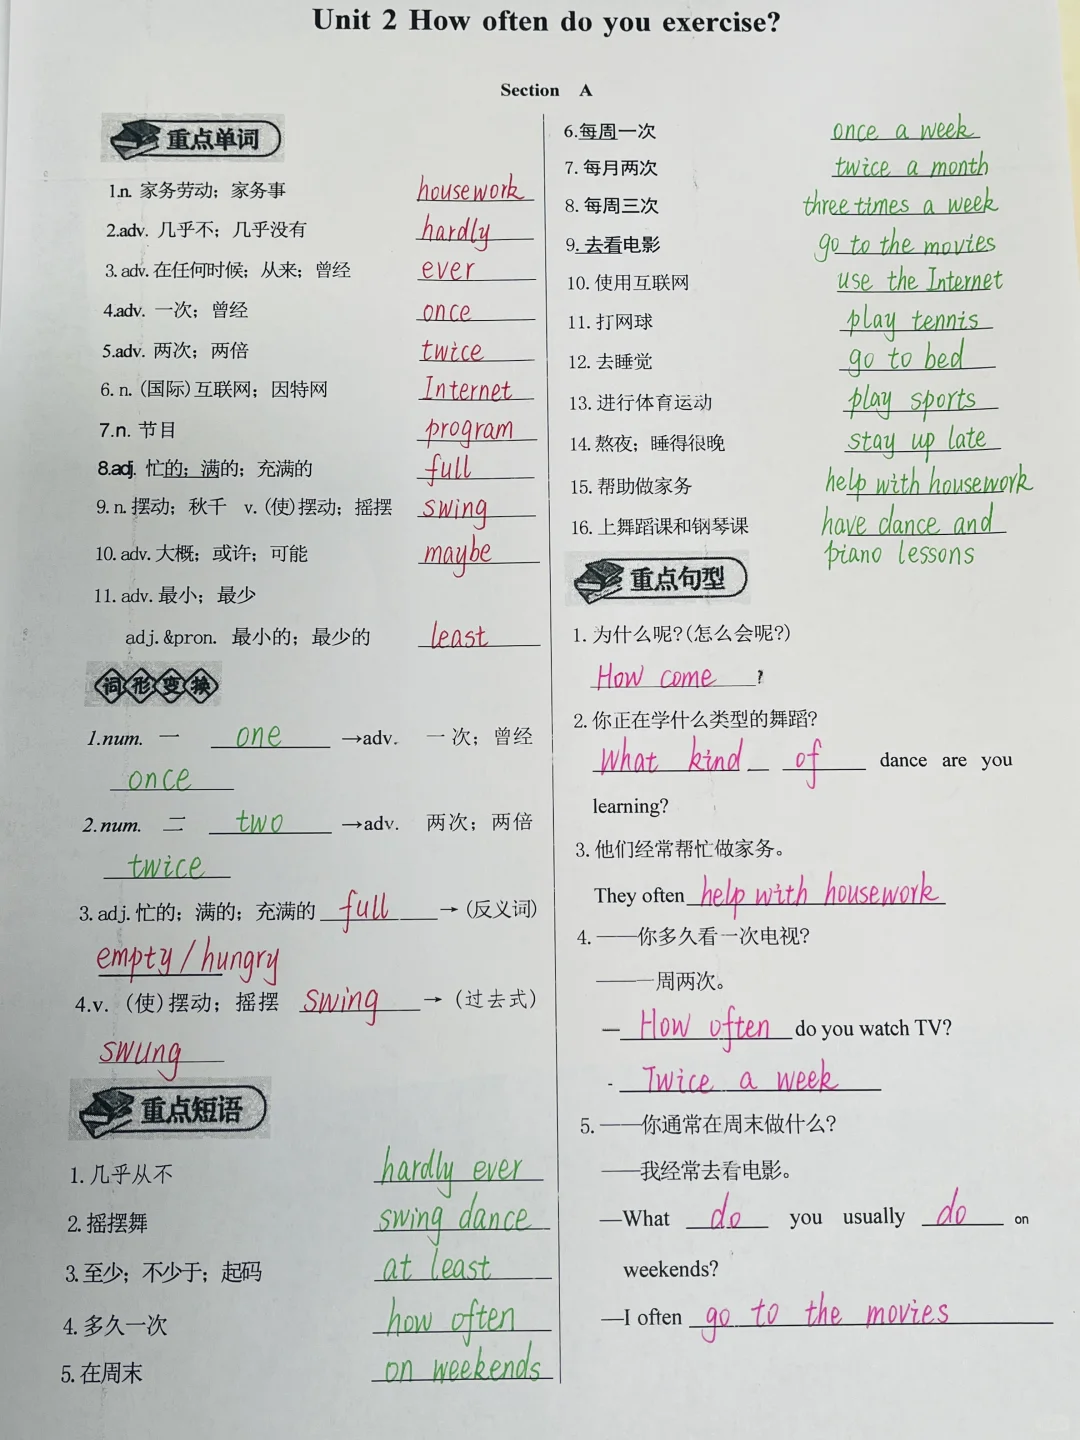 Unit 2 How often do you exercise?
Section A
重点单词
1.n. 家务劳动；家务事 housework
2.adv. 几乎不；几乎没有 hardly
3. adv. 在任何时候；从来；曾经 ever
4.adv. 一次；曾经 once
5.adv. 两次；两倍 twice
6. n. (国际)互联网；因特网 Internet
7.n. 节目 program
8.adj. 忙的；满的；充满的 full
9. n. 摆动；秋千 v. (使)摆动；摇摆 swing
10. adv. 大概；或许；可能 maybe
11. adv. 最小；最少
adj.&pron. 最小的；最少的 least
词形变换
1.num. 一 one →adv. 一次；曾经
once
2.num. 二 two →adv. 两次；两倍
twice
3. adj. 忙的；满的；充满的 full → (反义词)
empty / hungry
4.v. (使)摆动；摇摆 swing → (过去式)
swung
重点短语
1. 几乎从不 hardly ever
2. 摇摆舞 swing dance
3. 至少；不少于；起码 at least
4. 多久一次 how often
5. 在周末 on weekends
6.每周一次 once a week
7. 每月两次 twice a month
8. 每周三次 three times a week
9. 去看电影 go to the movies
10. 使用互联网 use the Internet
11. 打网球 play tennis
12. 去睡觉 go to bed
13. 进行体育运动 play sports
14. 熬夜；睡得很晚 stay up late
15. 帮助做家务 help with housework
16. 上舞蹈课和钢琴课 have dance and
piano lessons
重点句型
1. 为什么呢?(怎么会呢?)
How come ?
2. 你正在学什么类型的舞蹈?
What kind of dance are you
learning?
3. 他们经常帮忙做家务。
They often help with housework
4. ——你多久看一次电视?
——一周两次。
— How often do you watch TV?
- Twice a week
5. ——你通常在周末做什么?
——我经常去看电影。
—What do you usually do on
weekends?
—I often go to the movies